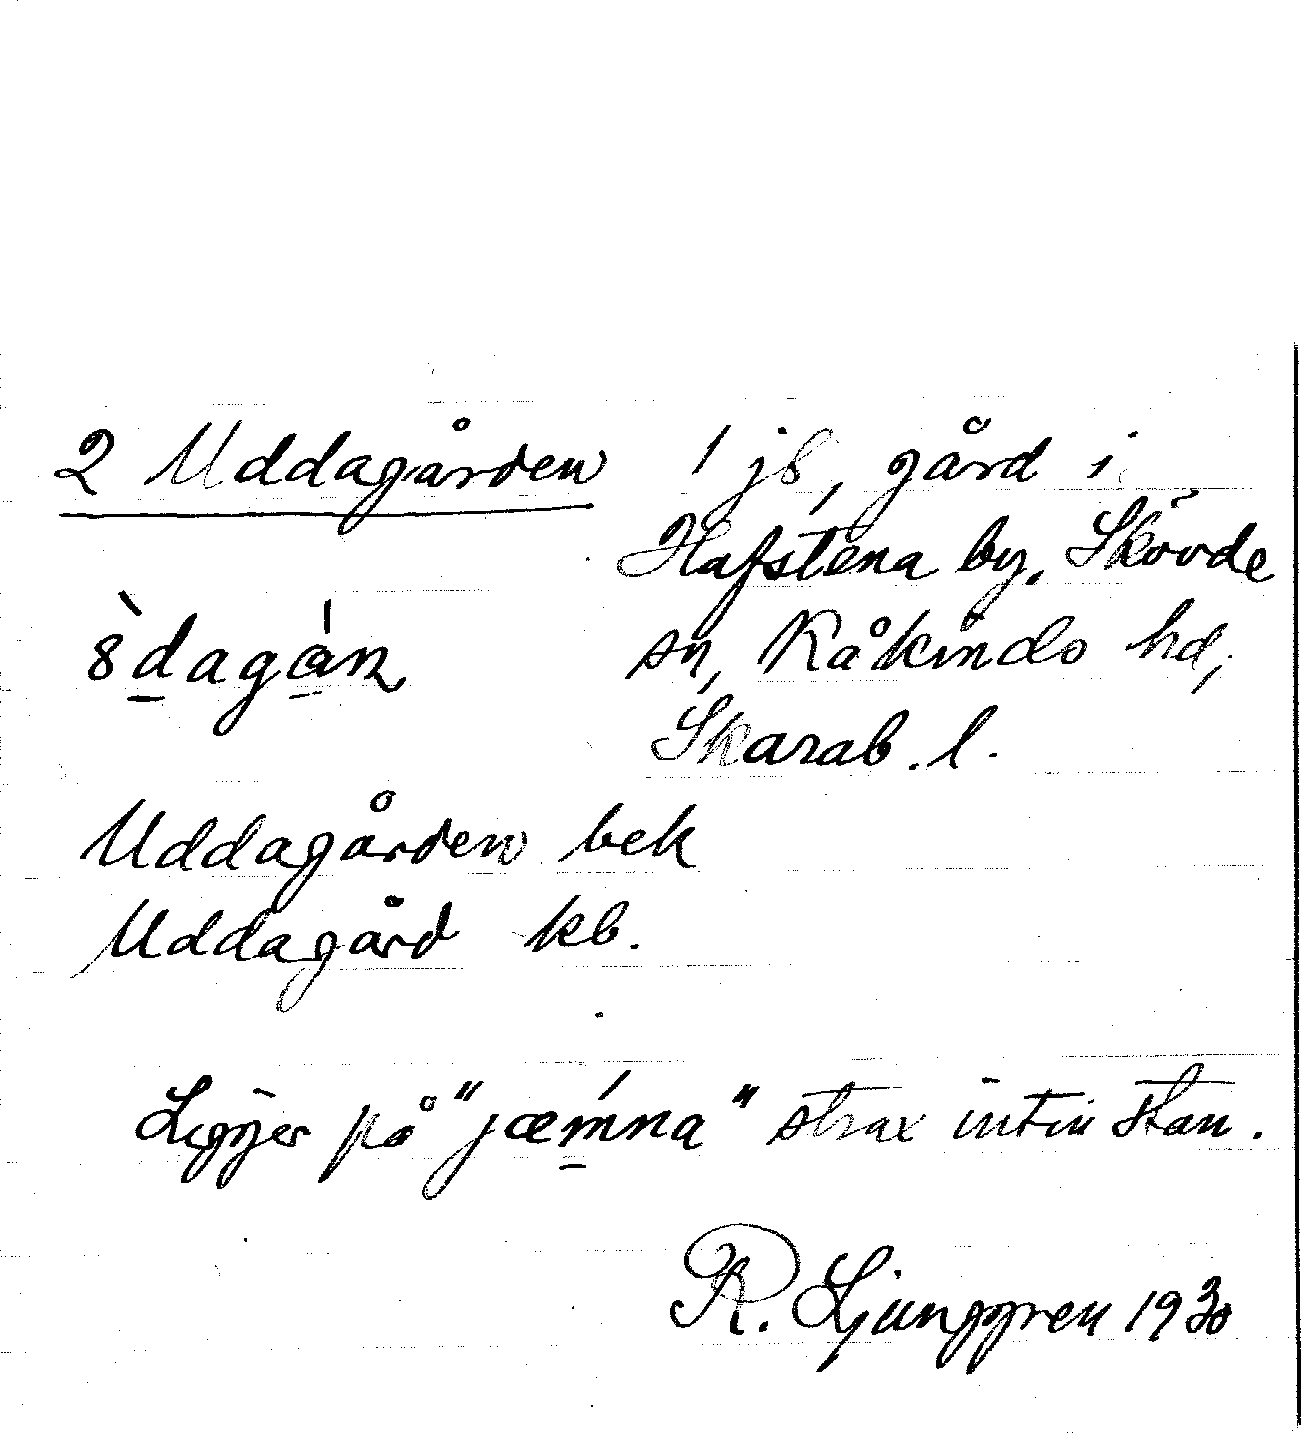 2 Uddagården 1 jb, gård i
Hafstena by, Skövde
sn, Kåkinds hd,
Skarab. l.
8̀dagán
Uddagården bek
Uddagård kb.
Ligger på "jæmna" strax intin stan.
R. Ljunggren 1930